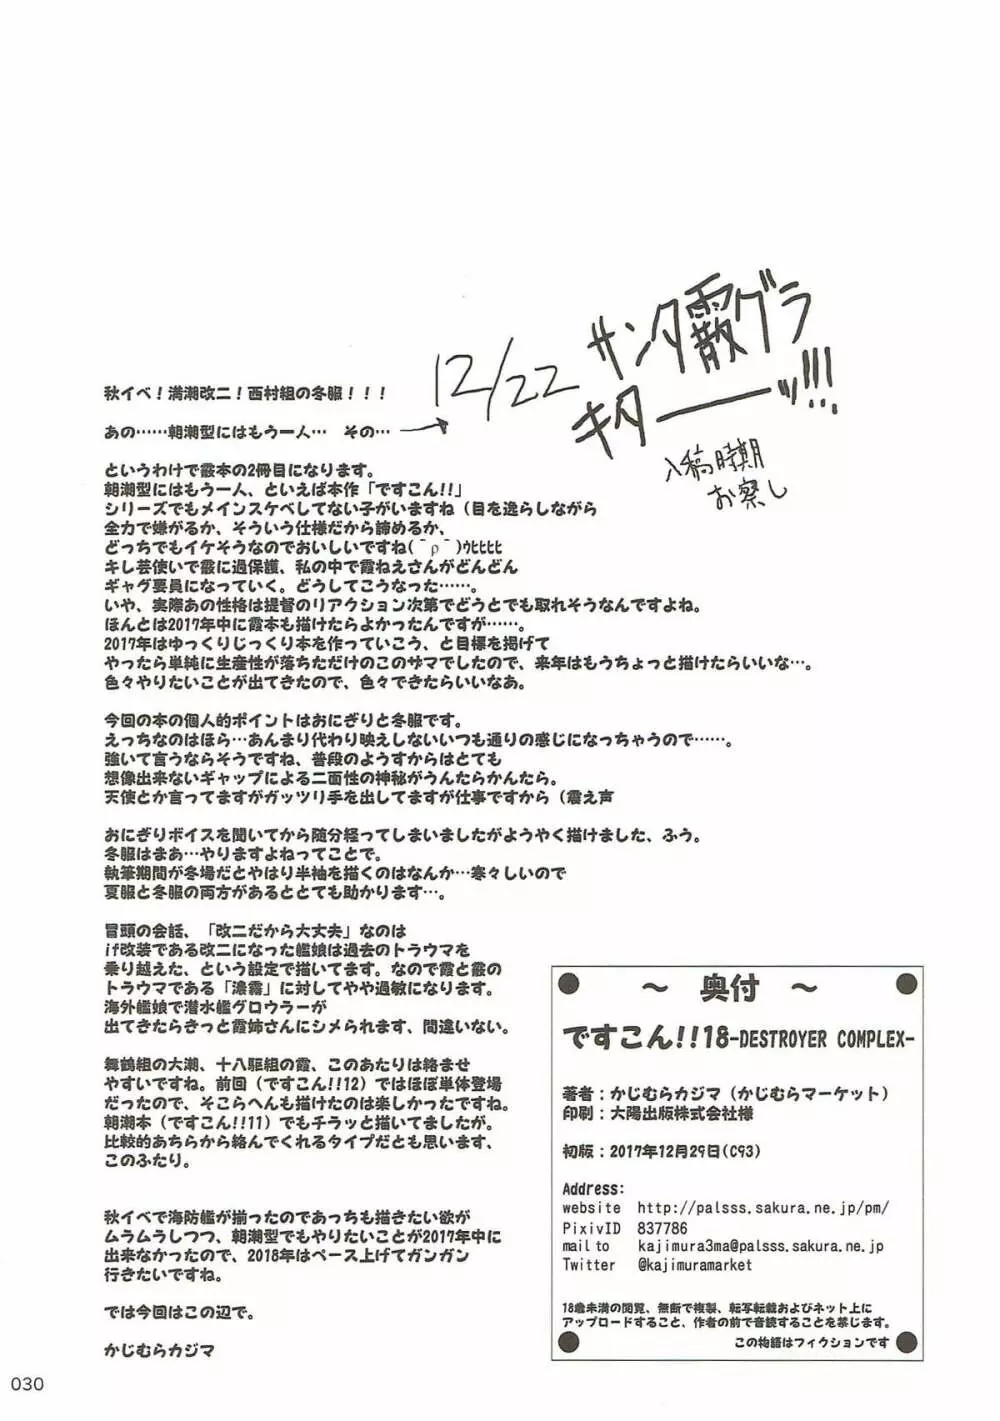 12/22 サンタ霰グラ
キターーーッ!!!
入稿時期
お察し
秋イベ！満潮改二！西村組の冬服！！！
あの……朝潮型にはもう一人… その…
というわけで霰本の2冊目になります。
朝潮型にはもう一人、といえば本作「ですこん!!」
シリーズでもメインスケベしてない子がいますね（目を逸らしながら
全力で嫌がるか、そういう仕様だから諦めるか、
どっちでもイケそうなのでおいしいですね(¯ρ¯)ｳﾋﾋﾋﾋ
キレ芸使いで霰に過保護、私の中で霞ねえさんがどんどん
ギャグ要員になっていく。どうしてこうなった……。
いや、実際あの性格は提督のリアクション次第でどうとでも取れそうなんですよね。
ほんとは2017年中に霞本も描けたらよかったんですが……。
2017年はゆっくりじっくり本を作っていこう、と目標を掲げて
やったら単純に生産性が落ちただけのこのサマでしたので、来年はもうちょっと描けたらいいな…。
色々やりたいことが出てきたので、色々できたらいいなあ。
今回の本の個人的ポイントはおにぎりと冬服です。
えっちなのはほら…あんまり代わり映えしないいつも通りの感じになっちゃうので……。
強いて言うならそうですね、普段のようすからはとても
想像出来ないギャップによる二面性の神秘がうんたらかんたら。
天使とか言ってますがガッツリ手を出してますが仕事ですから（震え声
おにぎりボイスを聞いてから随分経ってしまいましたがようやく描けました、ふう。
冬服はまあ…やりますよねってことで。
執筆期間が冬場だとやはり半袖を描くのはなんか…寒々しいので
夏服と冬服の両方があるととても助かります…。
冒頭の会話、「改二だから大丈夫」なのは
if改装である改二になった艦娘は過去のトラウマを
乗り越えた、という設定で描いてます。なので霞と霰の
トラウマである「濃霧」に対してやや過敏になります。
海外艦娘で潜水艦グロウラーが
出てきたらきっと霞姉さんにシメられます、間違いない。
舞鶴組の大潮、十八駆組の霞、このあたりは絡ませ
やすいですね。前回（ですこん!!12）ではほぼ単体登場
だったので、そこらへんも描けたのは楽しかったですね。
朝潮本（ですこん!!11）でもチラッと描いてましたが。
比較的あちらから絡んでくれるタイプだとも思います、
このふたり。
秋イベで海防艦が揃ったのであっちも描きたい欲が
ムラムラしつつ、朝潮型でもやりたいことが2017年中に
出来なかったので、2018年はペース上げてガンガン
行きたいですね。
では今回はこの辺で。
かじむらカジマ
～ 奥付 ～
ですこん!!18-DESTROYER COMPLEX-
著者：かじむらカジマ（かじむらマーケット）
印刷：大陽出版株式会社様
初版：2017年12月29日(C93)
Address:
website http://palsss.sakura.ne.jp/pm/
PixivID 837786
mail to kajimura3ma@palsss.sakura.ne.jp
Twitter @kajimuramarket
18歳未満の閲覧、無断で複製、転写転載およびネット上に
アップロードすること、作者の前で音読することを禁じます。
この物語はフィクションです
030